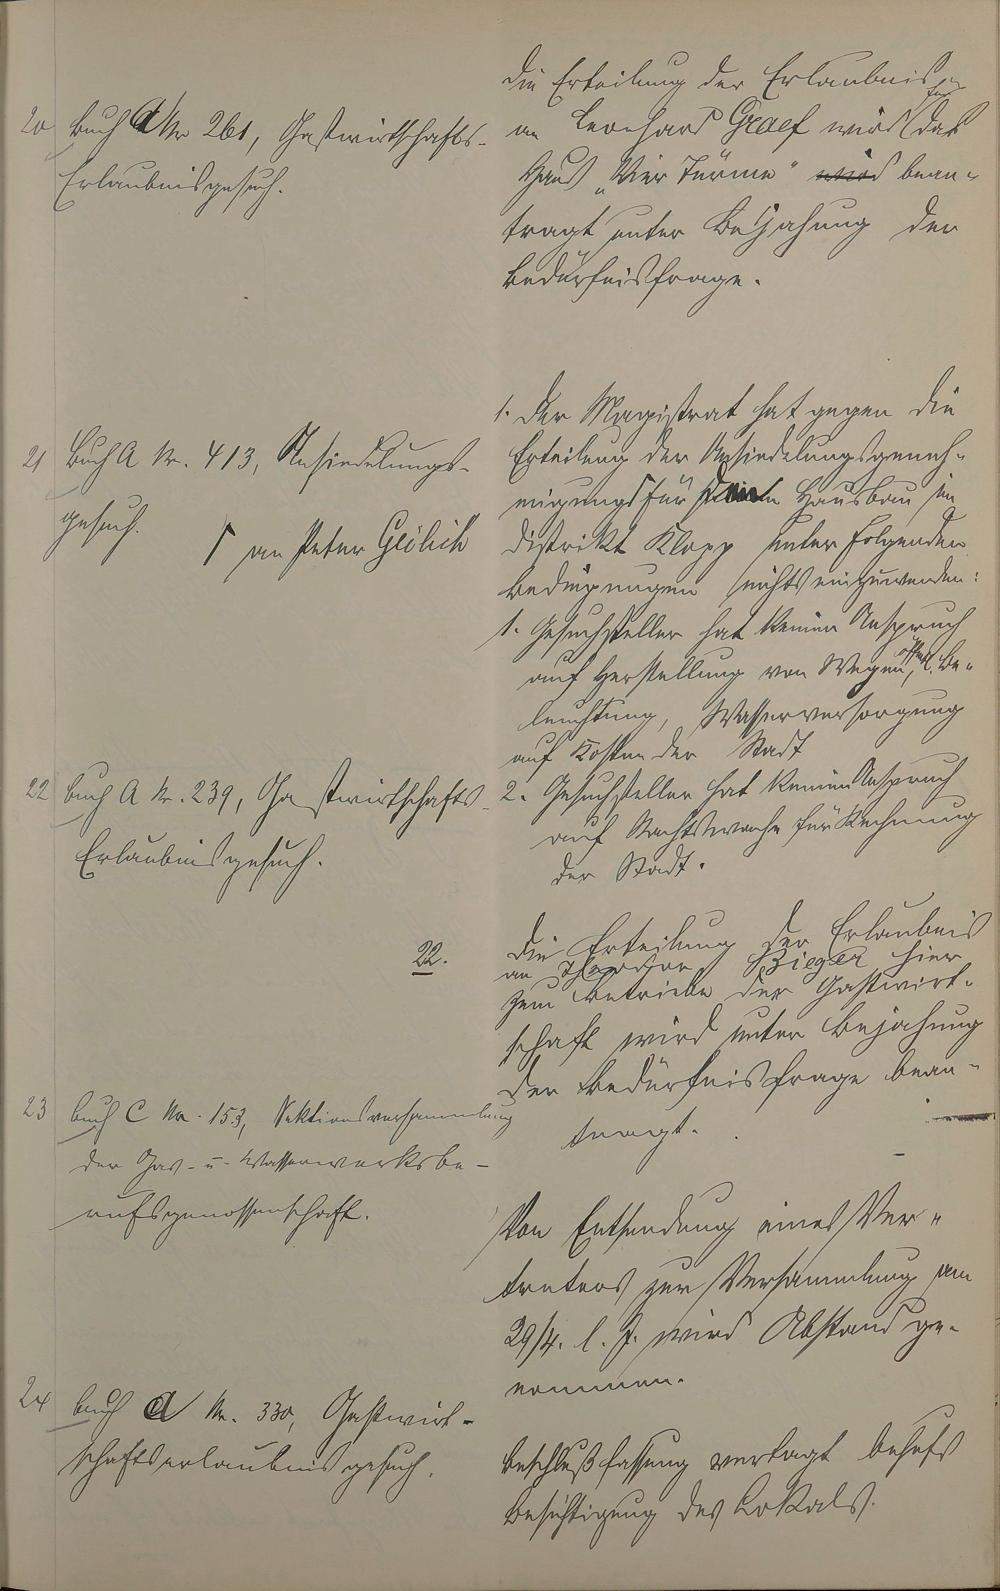 20 Buch A Nr 261, Gastwirtschafts-
Erlaubnisgesuch.
Die Erteilung der Erlaubnis
an Leonhard Graef wird für das
Haus „Vier Türme" wird bean-
tragt unter Bejahung der
Bedürfnisfrage.
21 Buch A Nr. 413, Ansiedelungs-
gesuch.
an Peter Geilich
1. Der Magistrat hat gegen die
Erteilung der Ansiedelungsgeneh-
migung für Hausbau im
Distrikt Klopp unter folgenden
Bedingungen nichts einzuwenden:
1. Gesuchsteller hat keinen Anspruch
auf Herstellung von Wegen, öffentl. Be-
leuchtung, Wasserversorgung
auf Kosten der Stadt
2. Gesuchsteller hat keinen Anspruch
auf Nachtwache für Rechnung
der Stadt.
22 Buch A Nr. 239, Gastwirtschafts-
Erlaubnisgesuch.
22.
Die Erteilung der Erlaubnis
an Theodor Bieger hier
zum Betriebe der Gastwirt-
schaft wird unter Bejahung
der Bedürfnisfrage bean-
tragt.
23 Buch C Nr. 153, Sektionsversammlung
der Gas- u- Wasserwerksbe-
rufsgenossenschaft.
Von Entsendung eines Ver-
treters zur Versammlung am
29/4. l. J. wird Abstand ge-
nommen.
24 Buch A Nr. 330, Gastwirt-
schaftserlaubnisgesuch.
Beschlußfassung vertagt behufs
Besichtigung des Lokals.